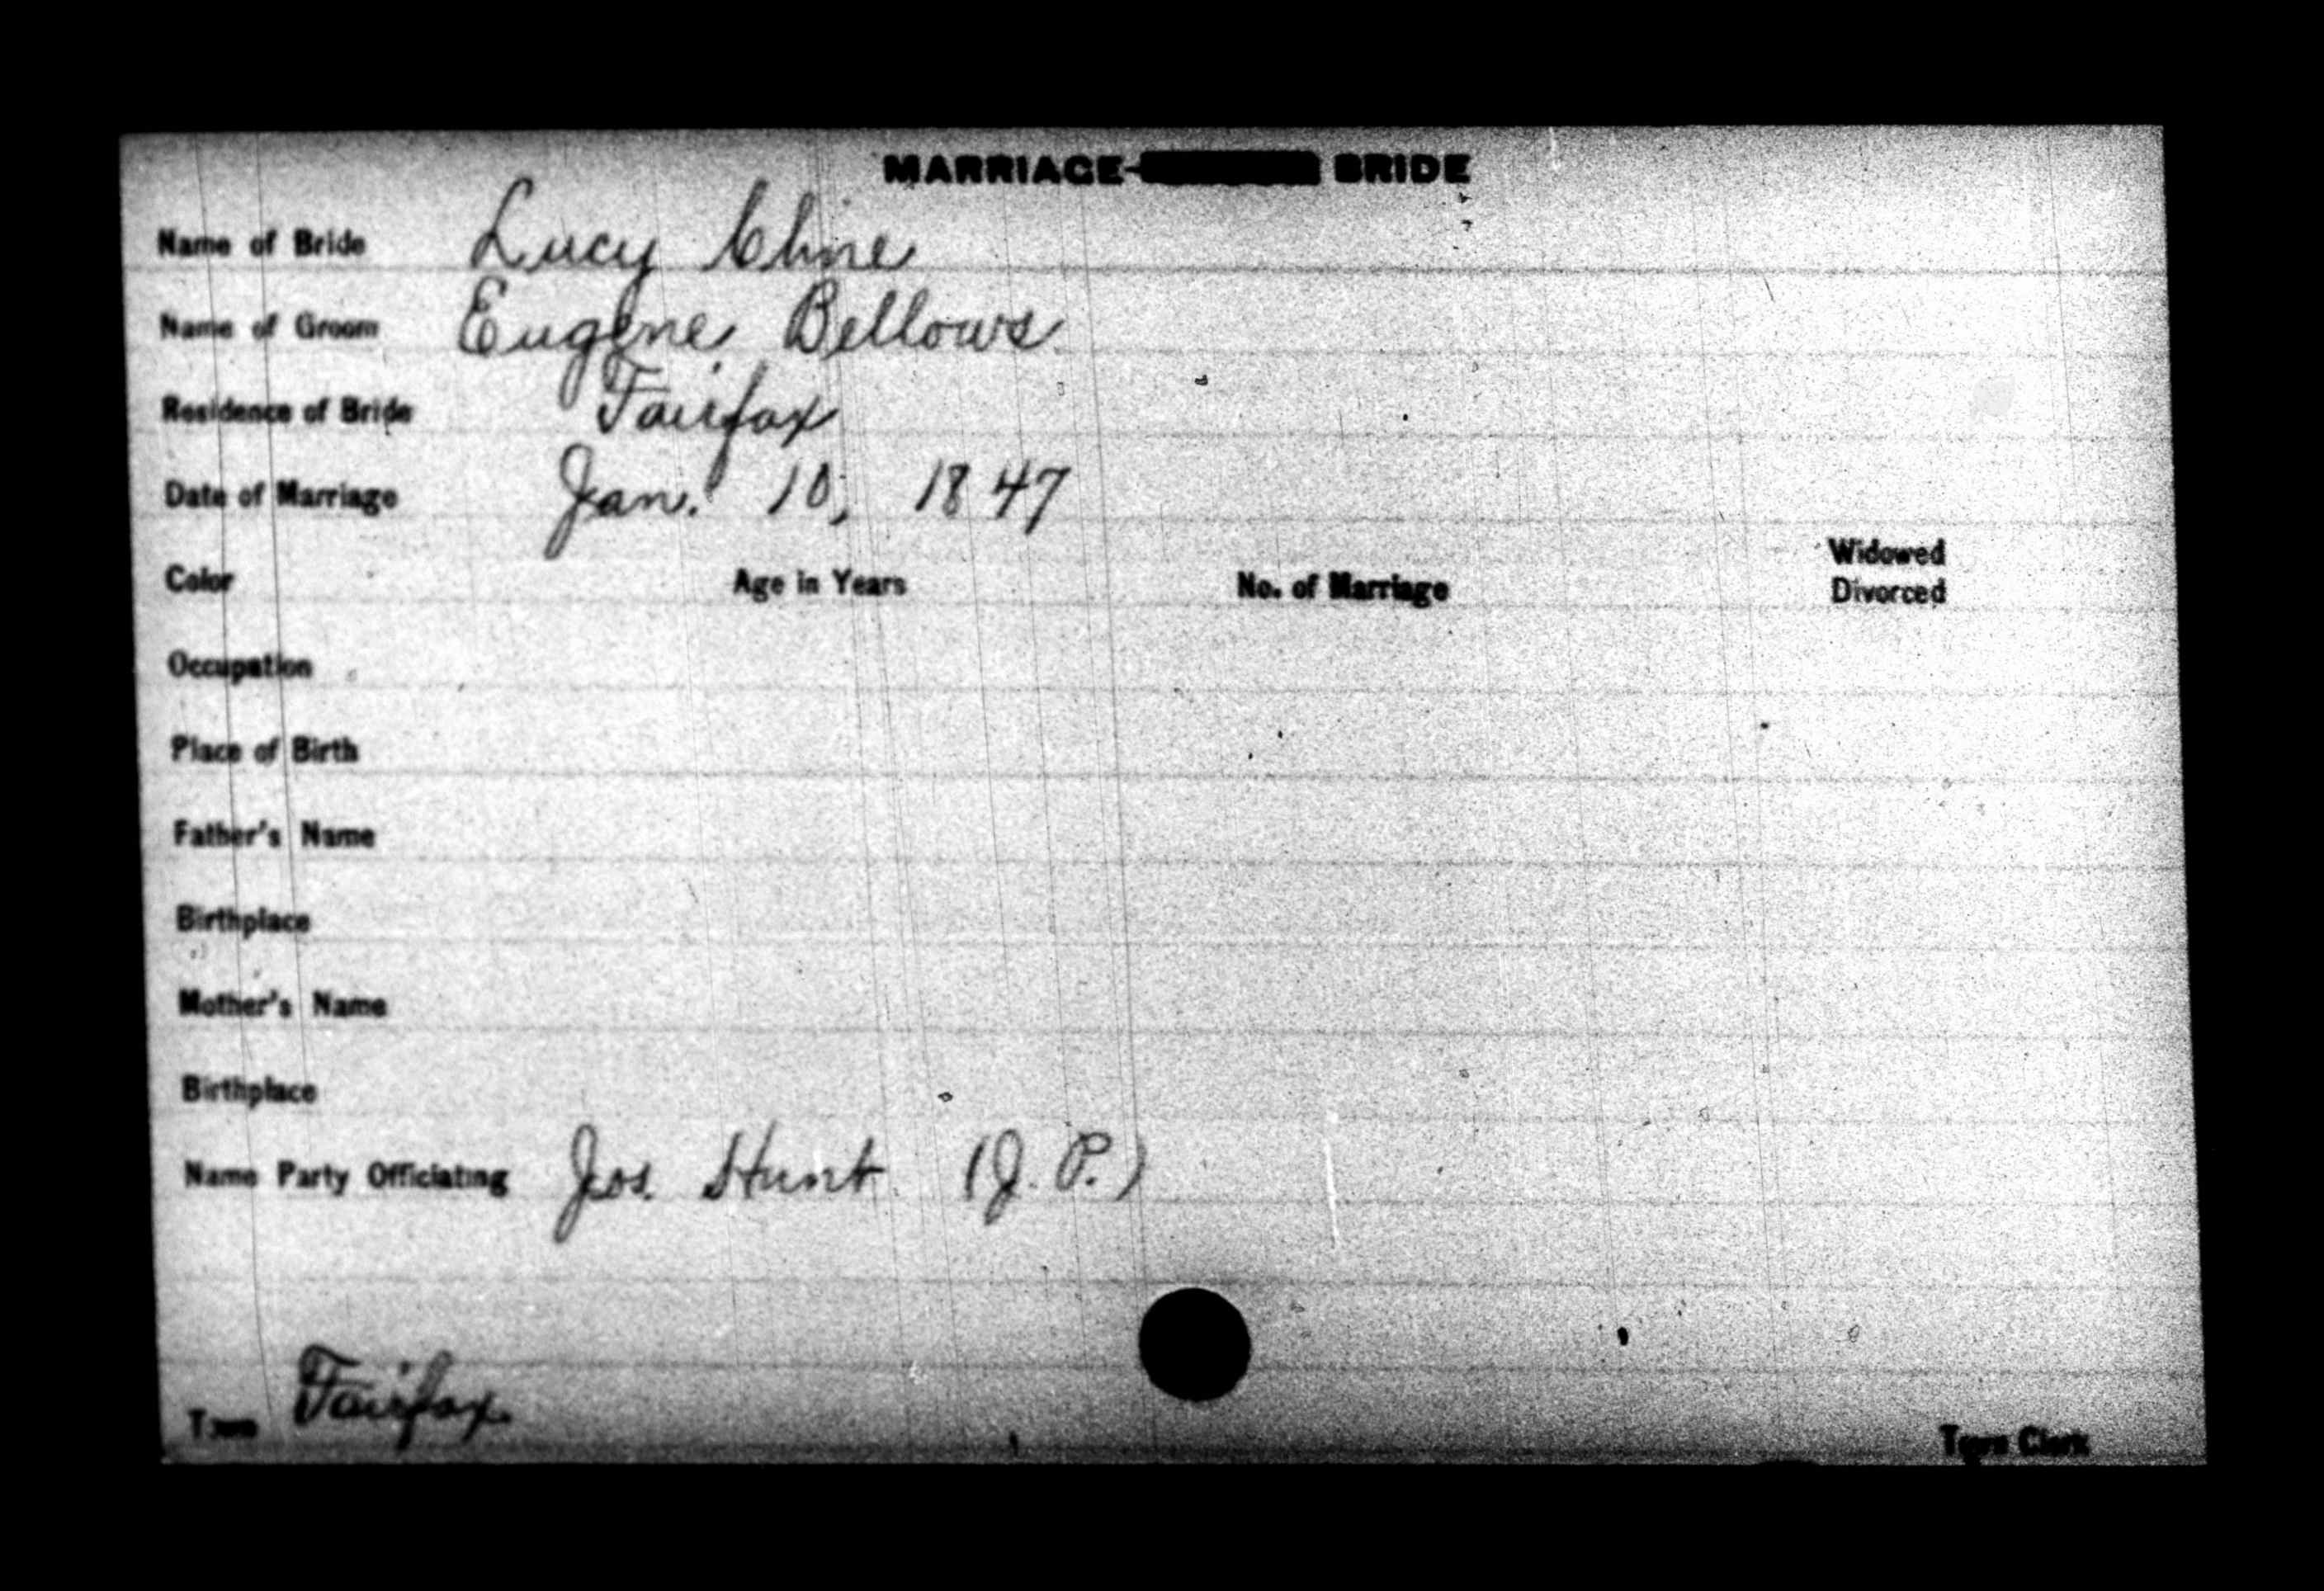 MARRIAGE- BRIDE
Name of Bride Lucy Cline
Name of Groom Eugene Bellows
Residence of Bride Fairfax
Date of Marriage Jan. 10, 1847
Color Age in Years No. of Marriage Widowed
Divorced
Occupation
Place of Birth
Father's Name
Birthplace
Mother's Name
Birthplace
Name Party Officiating Jos. Hunt (J. P.)
Town Fairfax
Town Clerk